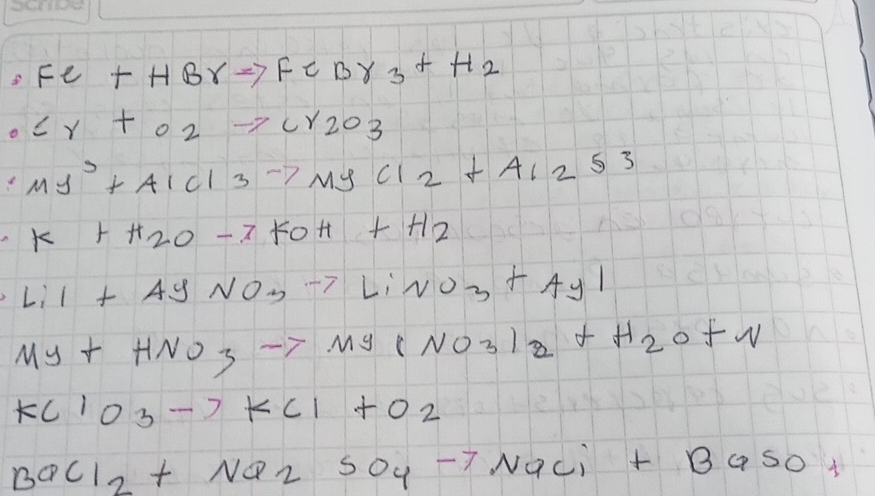 Scribe
Fe + HBr → FeBr3 + H2
Cr + O2 → Cr2O3
MgS + AlCl3 → MgCl2 + Al2S3
K + H2O → KOH + H2
LiI + AgNO3 → LiNO3 + AgI
Mg + HNO3 → Mg(NO3)2 + H2O + N
KClO3 → KCl + O2
BaCl2 + Na2SO4 → NaCl + BaSO4